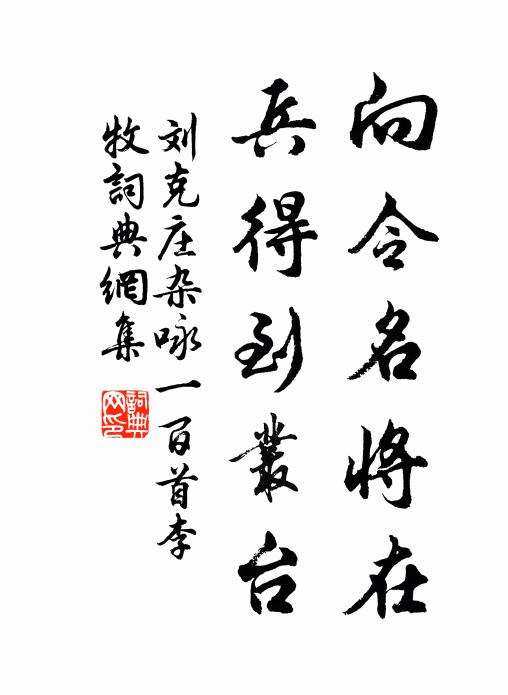 向令名将在
兵得到叢台
刘克庄杂咏一百首李
牧詞典網集
詞典网印